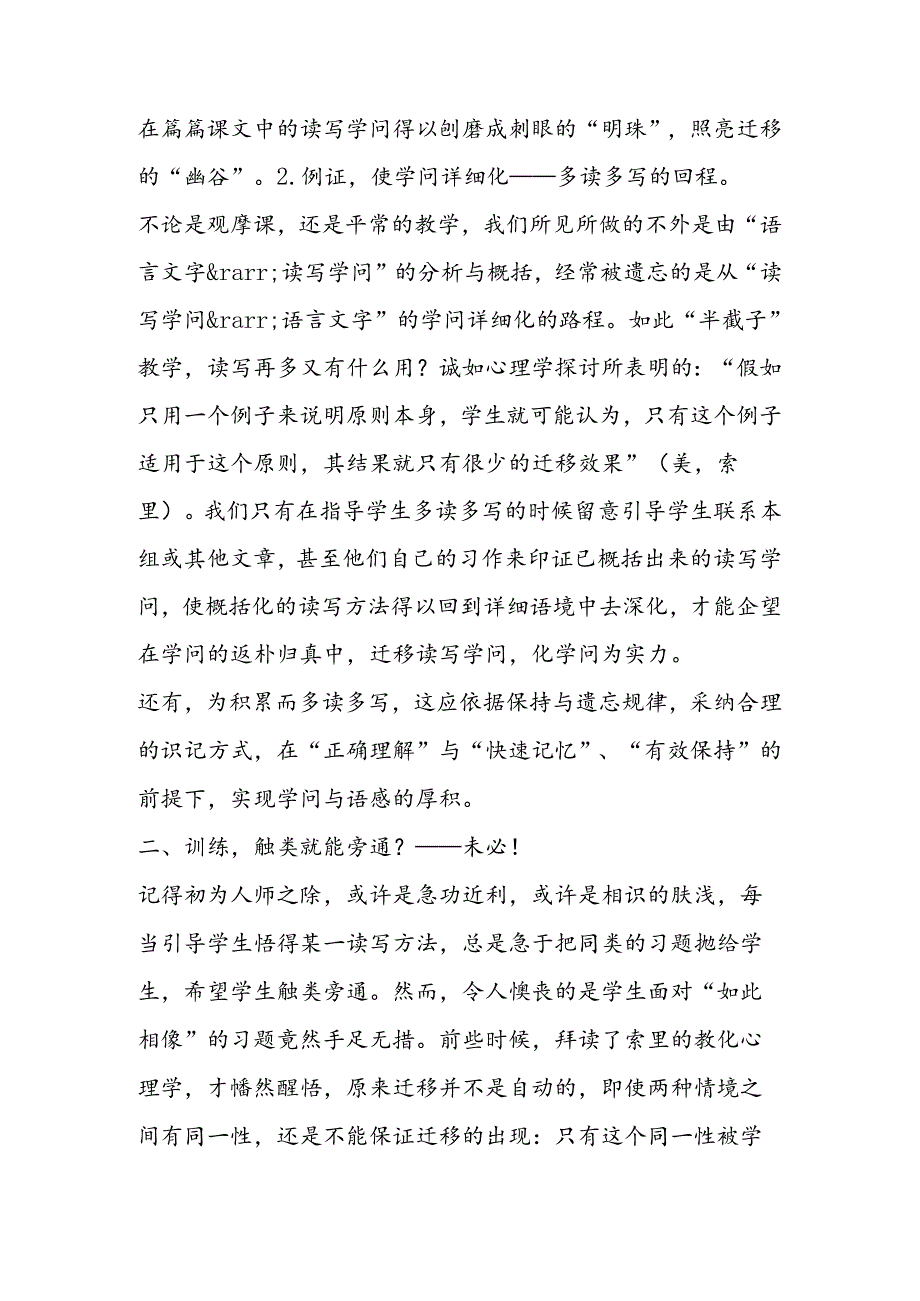 在篇篇课文中的读写学问得以刨磨成刺眼的“明珠”，照亮迁移
的“幽谷”。2.例证，使学问详细化——多读多写的回程。
不论是观摩课，还是平常的教学，我们所见所做的不外是由“语
言文字&rarr;读写学问”的分析与概括，经常被遗忘的是从“读
写学问&rarr;语言文字”的学问详细化的路程。如此“半截子”
教学，读写再多又有什么用？诚如心理学探讨所表明的：“假如
只用一个例子来说明原则本身，学生就可能认为，只有这个例子
适用于这个原则，其结果就只有很少的迁移效果”（美，索
里）。我们只有在指导学生多读多写的时候留意引导学生联系本
组或其他文章，甚至他们自己的习作来印证已概括出来的读写学
问，使概括化的读写方法得以回到详细语境中去深化，才能企望
在学问的返朴归真中，迁移读写学问，化学问为实力。
还有，为积累而多读多写，这应依据保持与遗忘规律，采纳合理
的识记方式，在“正确理解”与“快速记忆”、“有效保持”的
前提下，实现学问与语感的厚积。
二、训练，触类就能旁通？——未必！
记得初为人师之除，或许是急功近利，或许是相识的肤浅，每
当引导学生悟得某一读写方法，总是急于把同类的习题抛给学
生，希望学生触类旁通。然而，令人懊丧的是学生面对“如此
相像”的习题竟然手足无措。前些时候，拜读了索里的教化心
理学，才幡然醒悟，原来迁移并不是自动的，即使两种情境之
间有同一性，还是不能保证迁移的出现：只有这个同一性被学